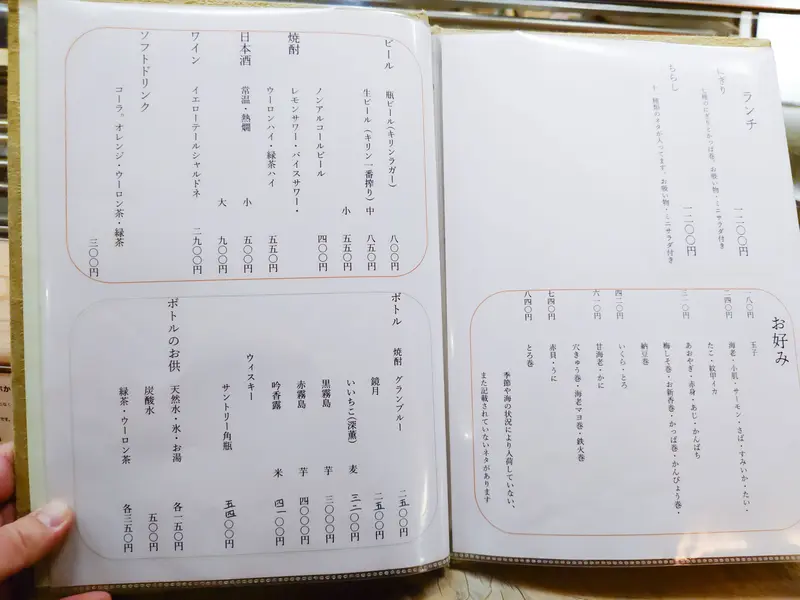 ランチ
にぎり
一二〇〇円
ちらし
十一種類のネタが入ってます。お吸い物・ミニサラダ付き
一二〇〇円
お好み
玉子
海老・小肌・サーモン・さば・すみいか・たい・
たこ・紋甲イカ
あおやぎ・赤身・あじ・かんぱち
梅しそ巻・お新香巻・かっぱ巻・かんぴょう巻・
納豆巻
四二〇円
いくら・とろ
六一〇円
甘海老・かに
穴きゅう巻・海老マヨ巻・鉄火巻
七四〇円
赤貝・うに
八四〇円
とろ巻
季節や海の状況により入荷していない、
また記載されていないネタがあります
ビール
瓶ビール(キリンラガー) 八〇〇円
生ビール(キリン一番搾り) 中 八五〇円
小 五五〇円
ノンアルコールビール 四〇〇円
焼酎
レモンサワー・バイスサワー・
ウーロンハイ・緑茶ハイ 五五〇円
日本酒
常温・熱燗 小 五〇〇円
大 九〇〇円
ワイン
イエローテールシャルドネ 二九〇〇円
ソフトドリンク
コーラ。オレンジ・ウーロン茶・緑茶
三〇〇円
ボトル
焼酎 グランブルー 二五〇〇円
鏡月 二五〇〇円
いいちこ(深薫) 麦 三二〇〇円
黒霧島 芋 三〇〇〇円
赤霧島 芋 四〇〇〇円
吟香露 米 四一〇〇円
ウイスキー
サントリー角瓶 五四〇〇円
ボトルのお供
天然水・氷・お湯 各一五〇円
炭酸水 五〇〇円
緑茶・ウーロン茶 各三五〇円